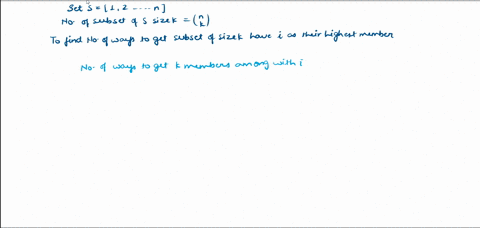 Set S = [1, 2 ..... n]
No. of subset of S size k = (n k)
To find No. of ways to get subset of size k have i as their highest member
No. of ways to get k members among with i